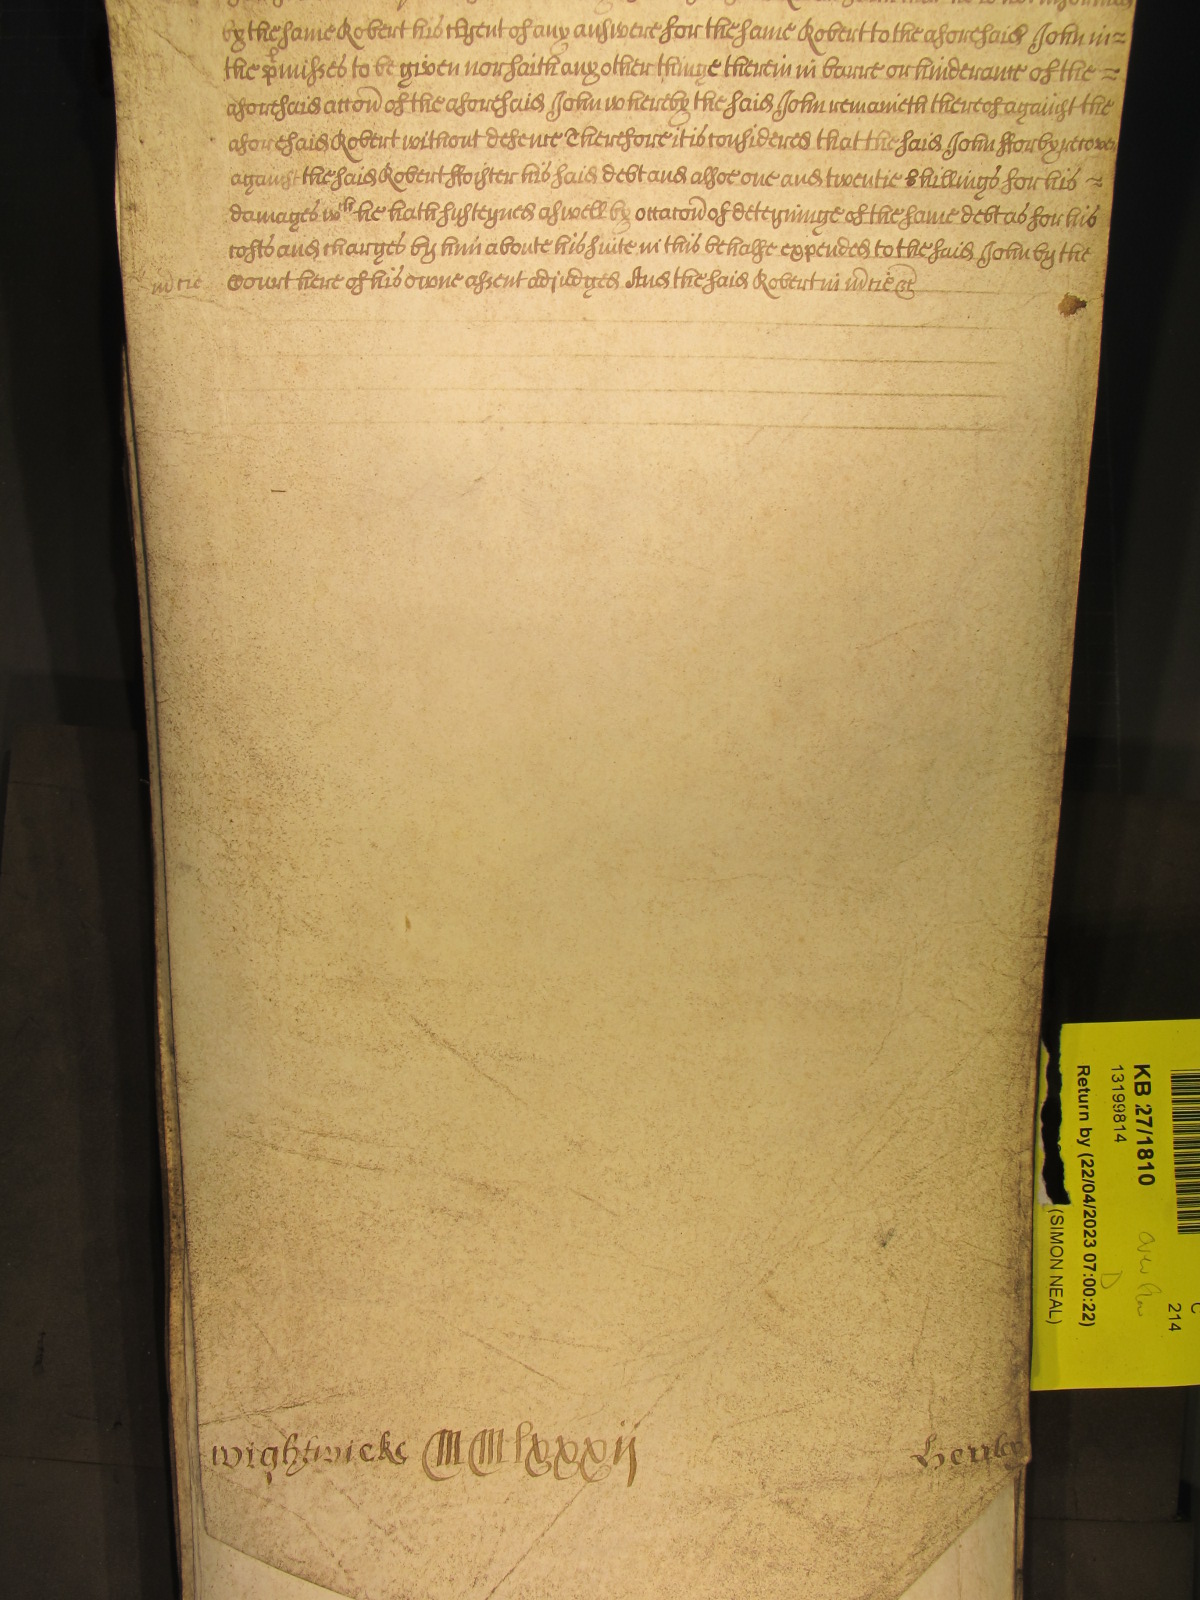 by the same Robert his Clyent of any answere for the same Robert to the aforesaid John in
the p̱misses to be given nor saith any other thinge therein in barre or hinderance of the
aforesaid acc̃on of the aforesaid John whereby the said John remaineth thereof against the
aforesaid Robert without defence Therefore it is considered that the said John fforby recover
against the said Robert ffoister his said debt and alsoe one and twentie Shillings for his
damages wch he hath susteyned aswell by occac̃on of deteyninge of the same debt as for his
costs and charges by him aboute his suite in this behalfe expended to the said John by the
Court here of his owne assent adjudged And the said Robert in m̃cie &c
in m̃cie
wightwicke MMlxxxij
Henley
KB 27/1810
13199814
Return by (22/04/2023 07:00:22)
(SIMON NEAL)
C
214
D